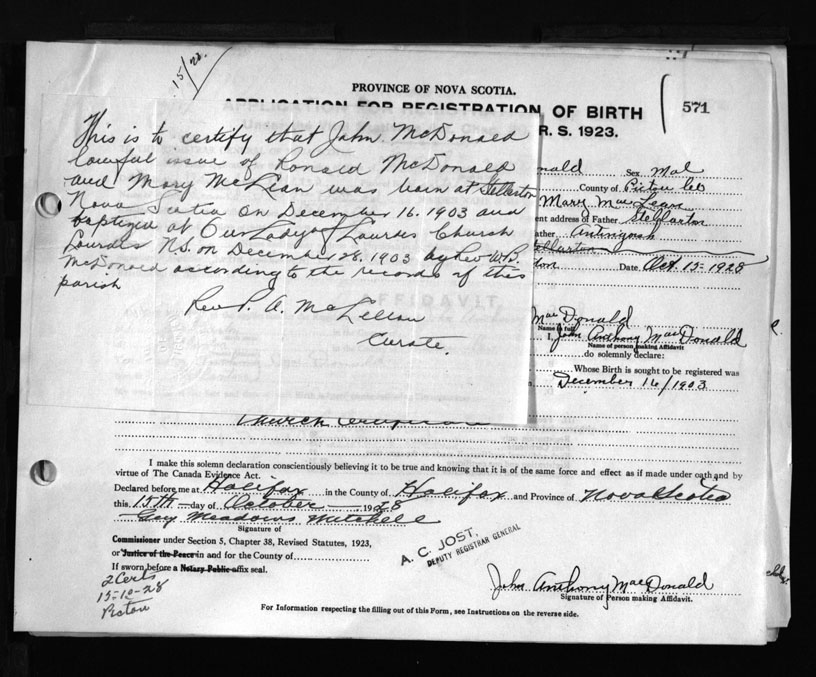 15/28
PROVINCE OF NOVA SCOTIA.
APPLICATION FOR REGISTRATION OF BIRTH
571
R. S. 1923.
This is to certify that John McDonald
lawful issue of Ronald McDonald
and Mary McLean was born at Stellarton
Nova Scotia on December 16. 1903 and
baptized at Our Lady of Lourdes Church
Lourdes N.S. on December 28. 1903 by Rev W. B.
McDonald according to the records of this
parish
Rev. P. A. McLellan
Curate.
onald Sex Mal
County of Pictou Co
Mary MacLean
ent address of Father Stellarton
ather Antigonish
ellarton
ton Date Oct. 15 - 1928
AFFIDAVIT
MacDonald
Name in full
I, John Anthony MacDonald
Name of person making Affidavit
do solemnly declare:
Whose Birth is sought to be registered was
December 16/1903
Church
I make this solemn declaration conscientiously believing it to be true and knowing that it is of the same force and effect as if made under oath and by
virtue of The Canada Evidence Act.
Declared before me at Halifax in the County of Halifax and Province of Nova Scotia
this 15th day of October 1928
Guy Meadows Mitchell
Signature of
Commissioner under Section 5, Chapter 38, Revised Statutes, 1923,
or Justice of the Peace in and for the County of
If sworn before a Notary Public affix seal.
A. C. JOST.
DEPUTY REGISTRAR GENERAL
2 Certs
15-10-28
Pictou
John Anthony MacDonald
Signature of Person making Affidavit.
For Information respecting the filling out of this Form, see Instructions on the reverse side.